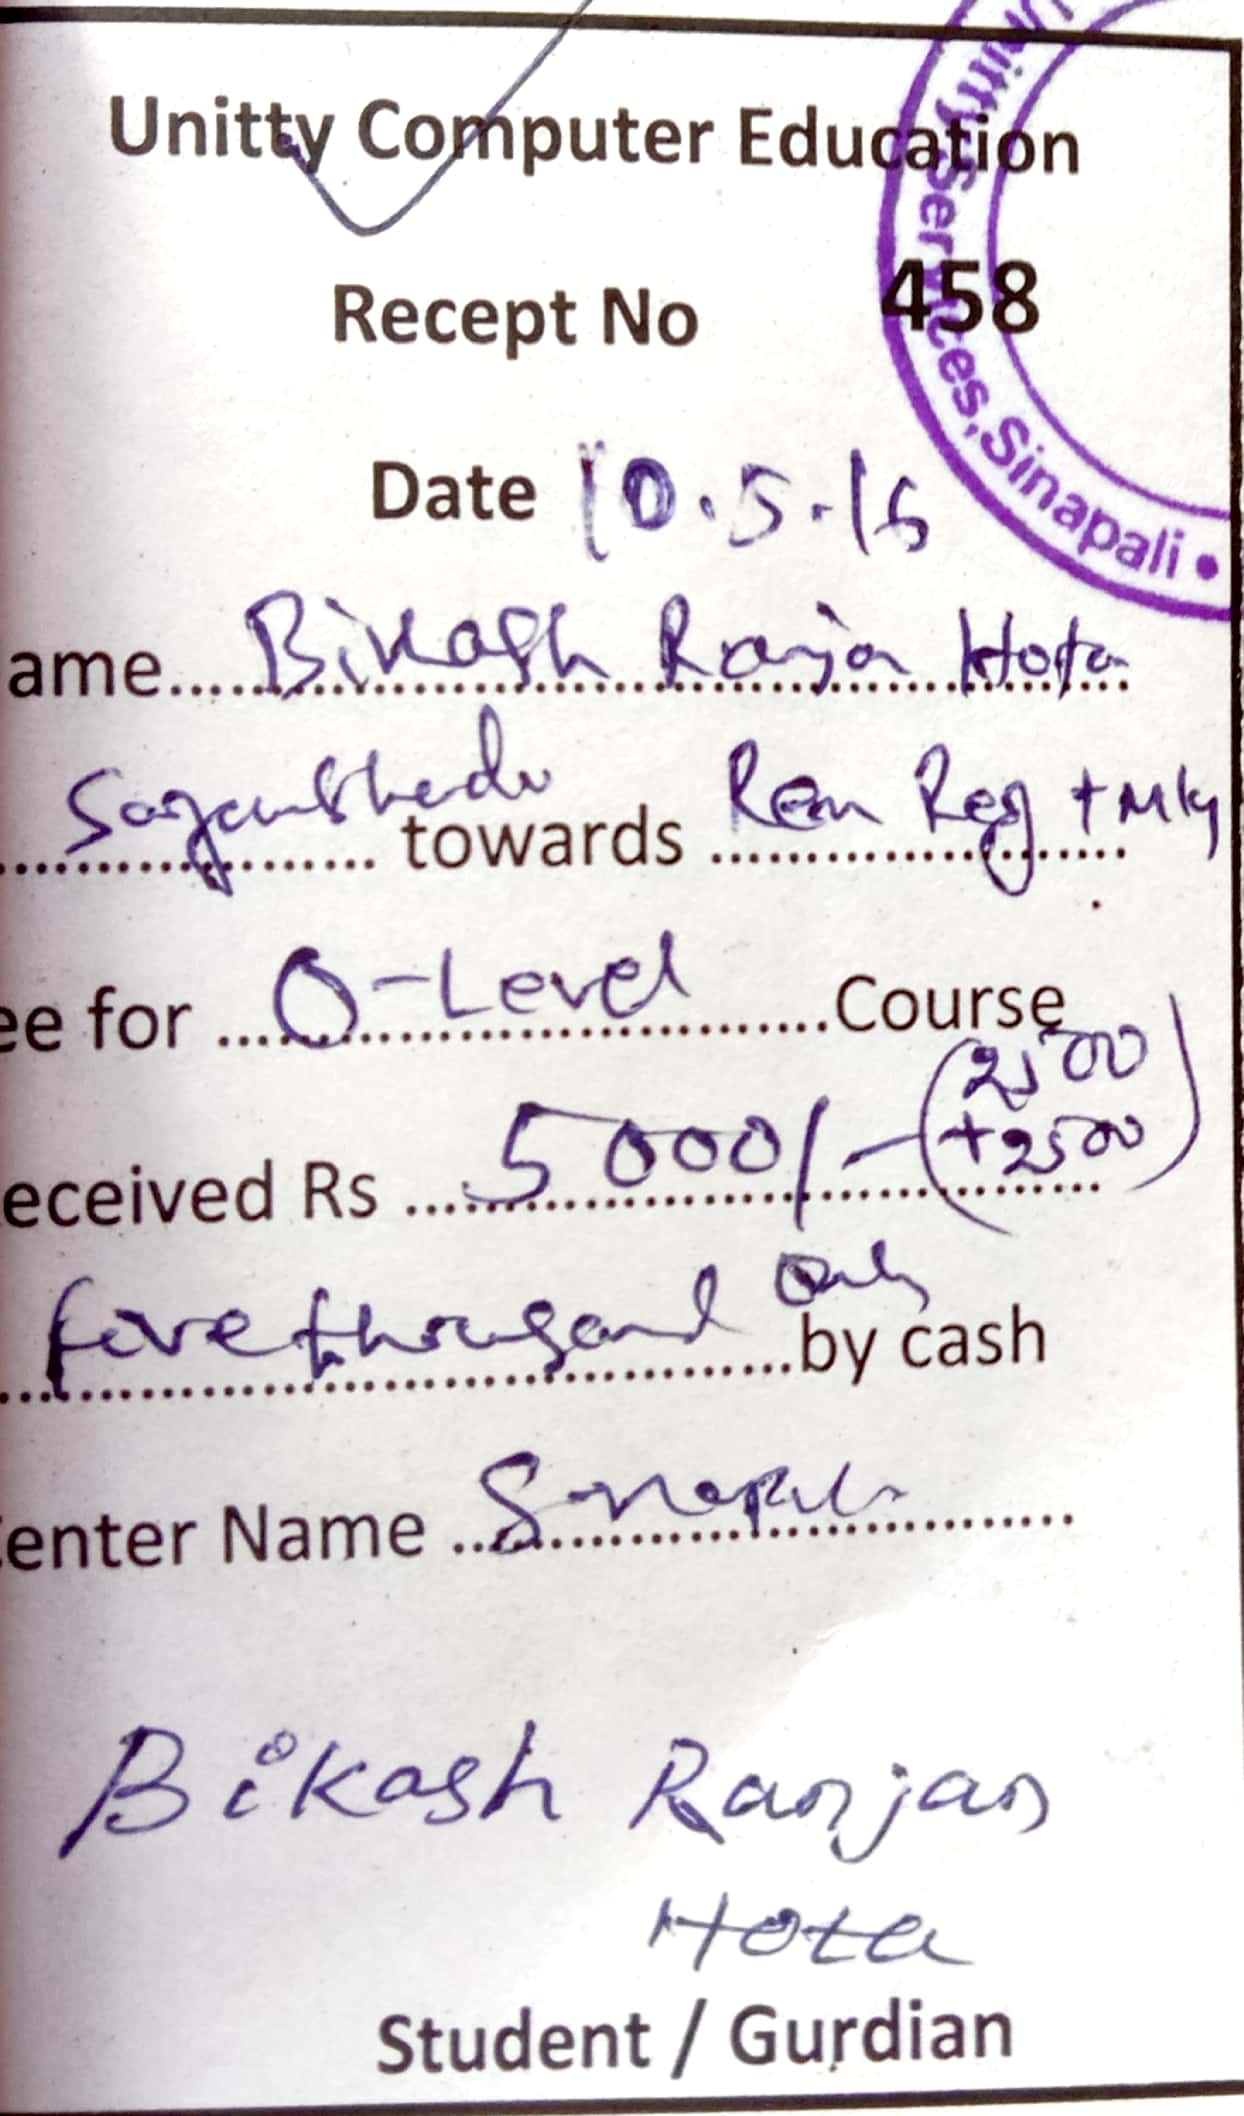 Unitty Computer Education
Unitty Services, Sinapali •
Recept No 458
Date 10.5.16
ame Bikash Ranjan Hota
towards Ren Reg + Mly
ee for O-Level Course
(2500
+2500)
eceived Rs 5000/-
five thousand only by cash
enter Name Sinapali
Bikash Ranjan
Hota
Student / Gurdian